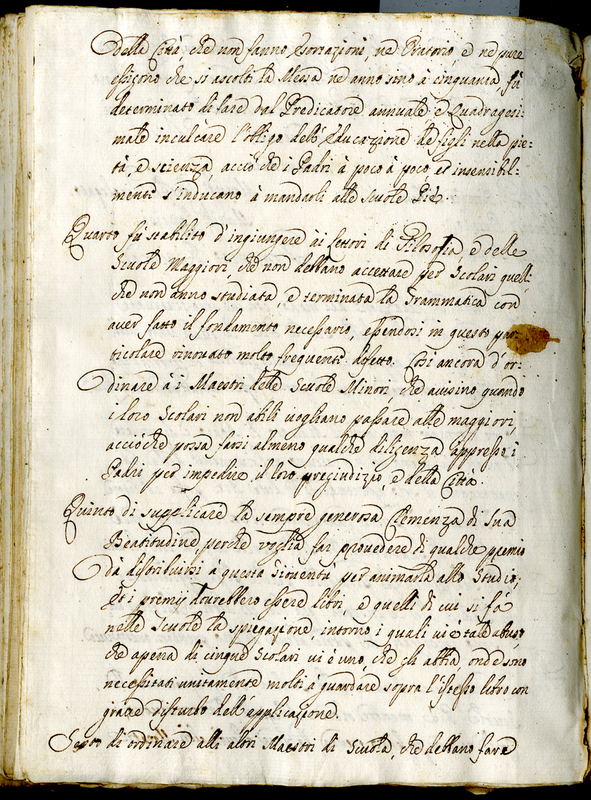 della Città, che non fanno esortazioni, ne Oratorio, e ne pure
esigono che si ascolti la Messa ne anno sino à cinquanta, fù
determinato di fare dal Predicatore annuale, e Quadragesi:
male inculcare l'obligo dell'educazione de figli nella pie:
tà, e scienza, acciò che i Padri à poco à poco, et insensibil:
mente s'inducano à mandarli alle Scuole Pie.
Quarto fù stabilito d'ingiungere ài Lettori di Filosofia e delle
Scuole Maggiori, che non debbano accettare per Scolari quelli
che non anno studiata, e terminata la Grammatica con
aver fatto il fondamento necessario, essendosi in questo par
ticolare rinovato molto frequente difetto. Così ancora d'or:
dinare à i Maestri delle Scuole Minori, che avisino quando
i loro Scolari non abili vogliano passare alle maggiori,
acciòche possa farsi almeno qualche diligenza appresso i
Padri per impedire il loro pregiudizio, e della Città.
Quinto di supplicare la sempre generosa Clemenza di Sua
Beatitudine perche voglia far provedere di qualche premio
dà distribuirsi à questa Gioventù per animarla allo Studio;
Et i premij dovrebbero essere libri, e quelli di cui si fa
nelle Scuole la spiegazione, intorno i quali vi è tale abuso,
che apena di cinque Scolari vi è uno, che gli abbia, onde sono
necessitati unitamente molti à guardare sopra l'istesso libro con
grande disturbo dell'applicazione.
Sesto di ordinare alli altri Maestri di Scuola, che debbano fare